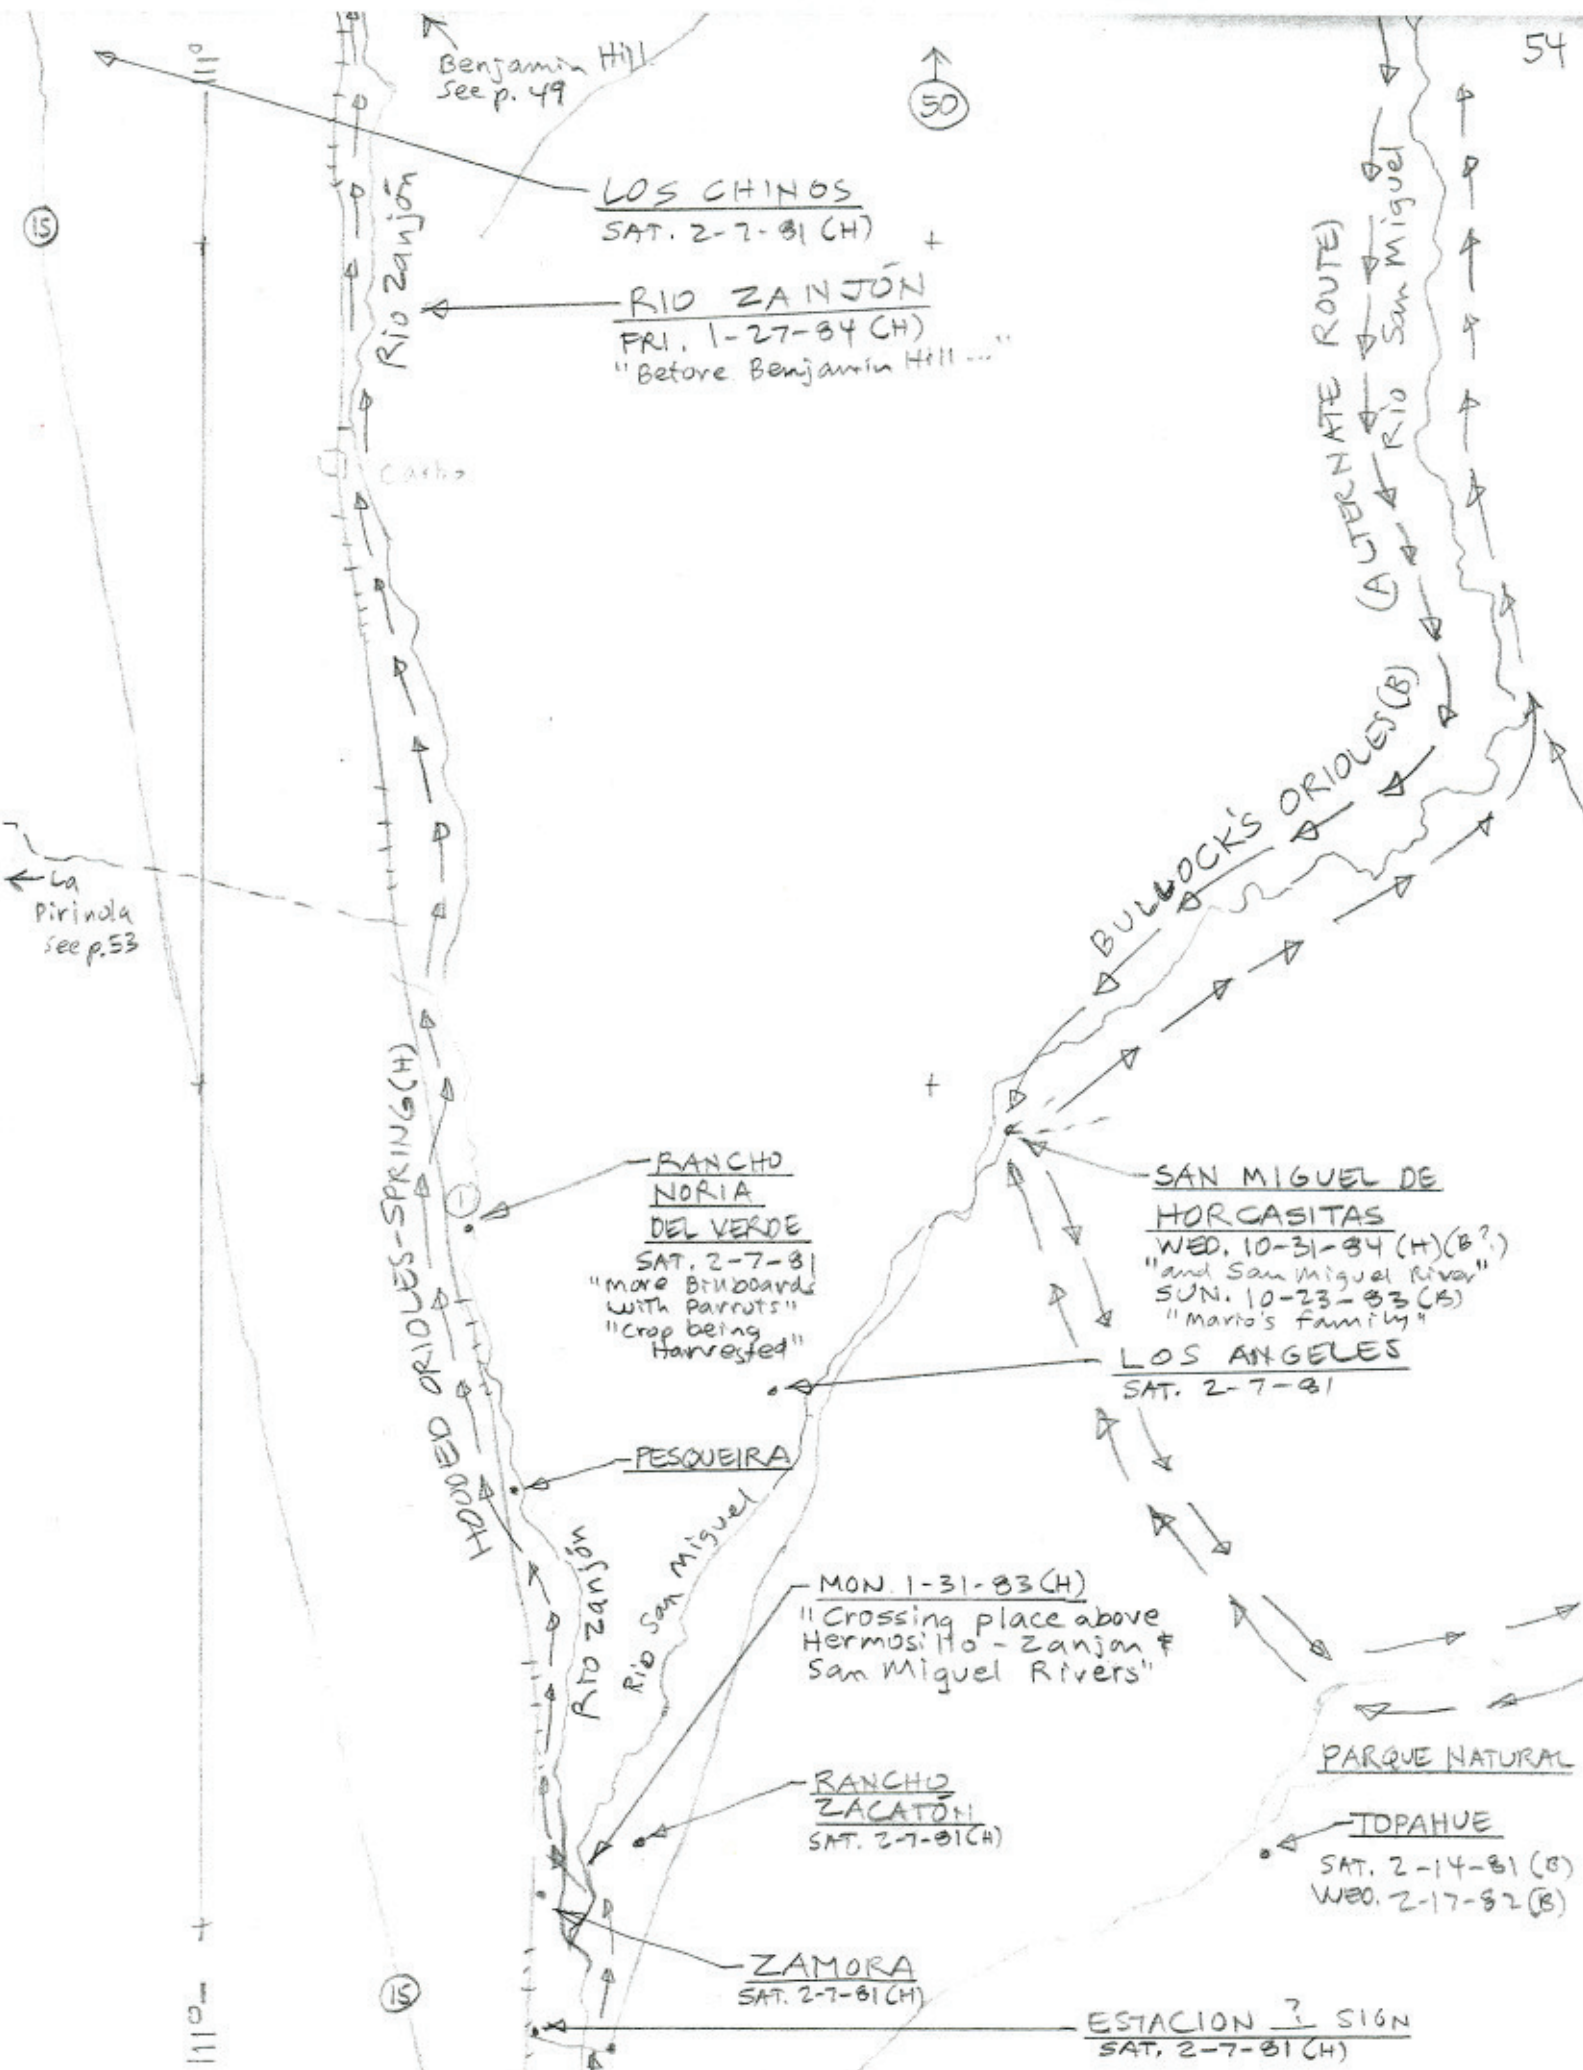 54
111°
Benjamin Hill
See p. 49
50
15
LOS CHINOS
SAT. 2-7-81 (H)
Rio Zanjón
RIO ZANJÓN
FRI. 1-27-84 (H)
"Before Benjamin Hill ..."
(ALTERNATE ROUTE)
Rio San Miguel
BULLOCK'S ORIOLES (B)
La
Pirinola
see p. 53
HOODED ORIOLES-SPRING (H)
RANCHO
NORIA
DEL VERDE
SAT. 2-7-81
"more Billboards
with Parrots"
"Crop being
Harvested"
SAN MIGUEL DE
HORCASITAS
WED. 10-31-84 (H) (B?)
"and San Miguel River"
SUN. 10-23-83 (B)
"Mario's family"
LOS ANGELES
SAT. 2-7-81
PESQUEIRA
Rio Zanjón
Rio San Miguel
MON. 1-31-83 (H)
"Crossing place above
Hermosillo - Zanjon &
San Miguel Rivers"
RANCHO
ZACATÓN
SAT. 2-7-81 (H)
PARQUE NATURAL
TOPAHUE
SAT. 2-14-81 (B)
WED. 2-17-82 (B)
ZAMORA
SAT. 2-7-81 (H)
15
111°
ESTACION ? SIGN
SAT. 2-7-81 (H)